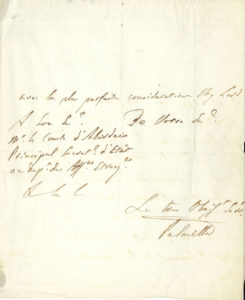 avec la plus parfaite consideration My Lord
A Son E.ce De Votre E.ce
Mr. le Comte d'Aberdeen
Principal Secret.e d'Etat
au Dep.t des Aff.res Etrang.res
& & &
Le très Obéiss.t Ser.
Palmella